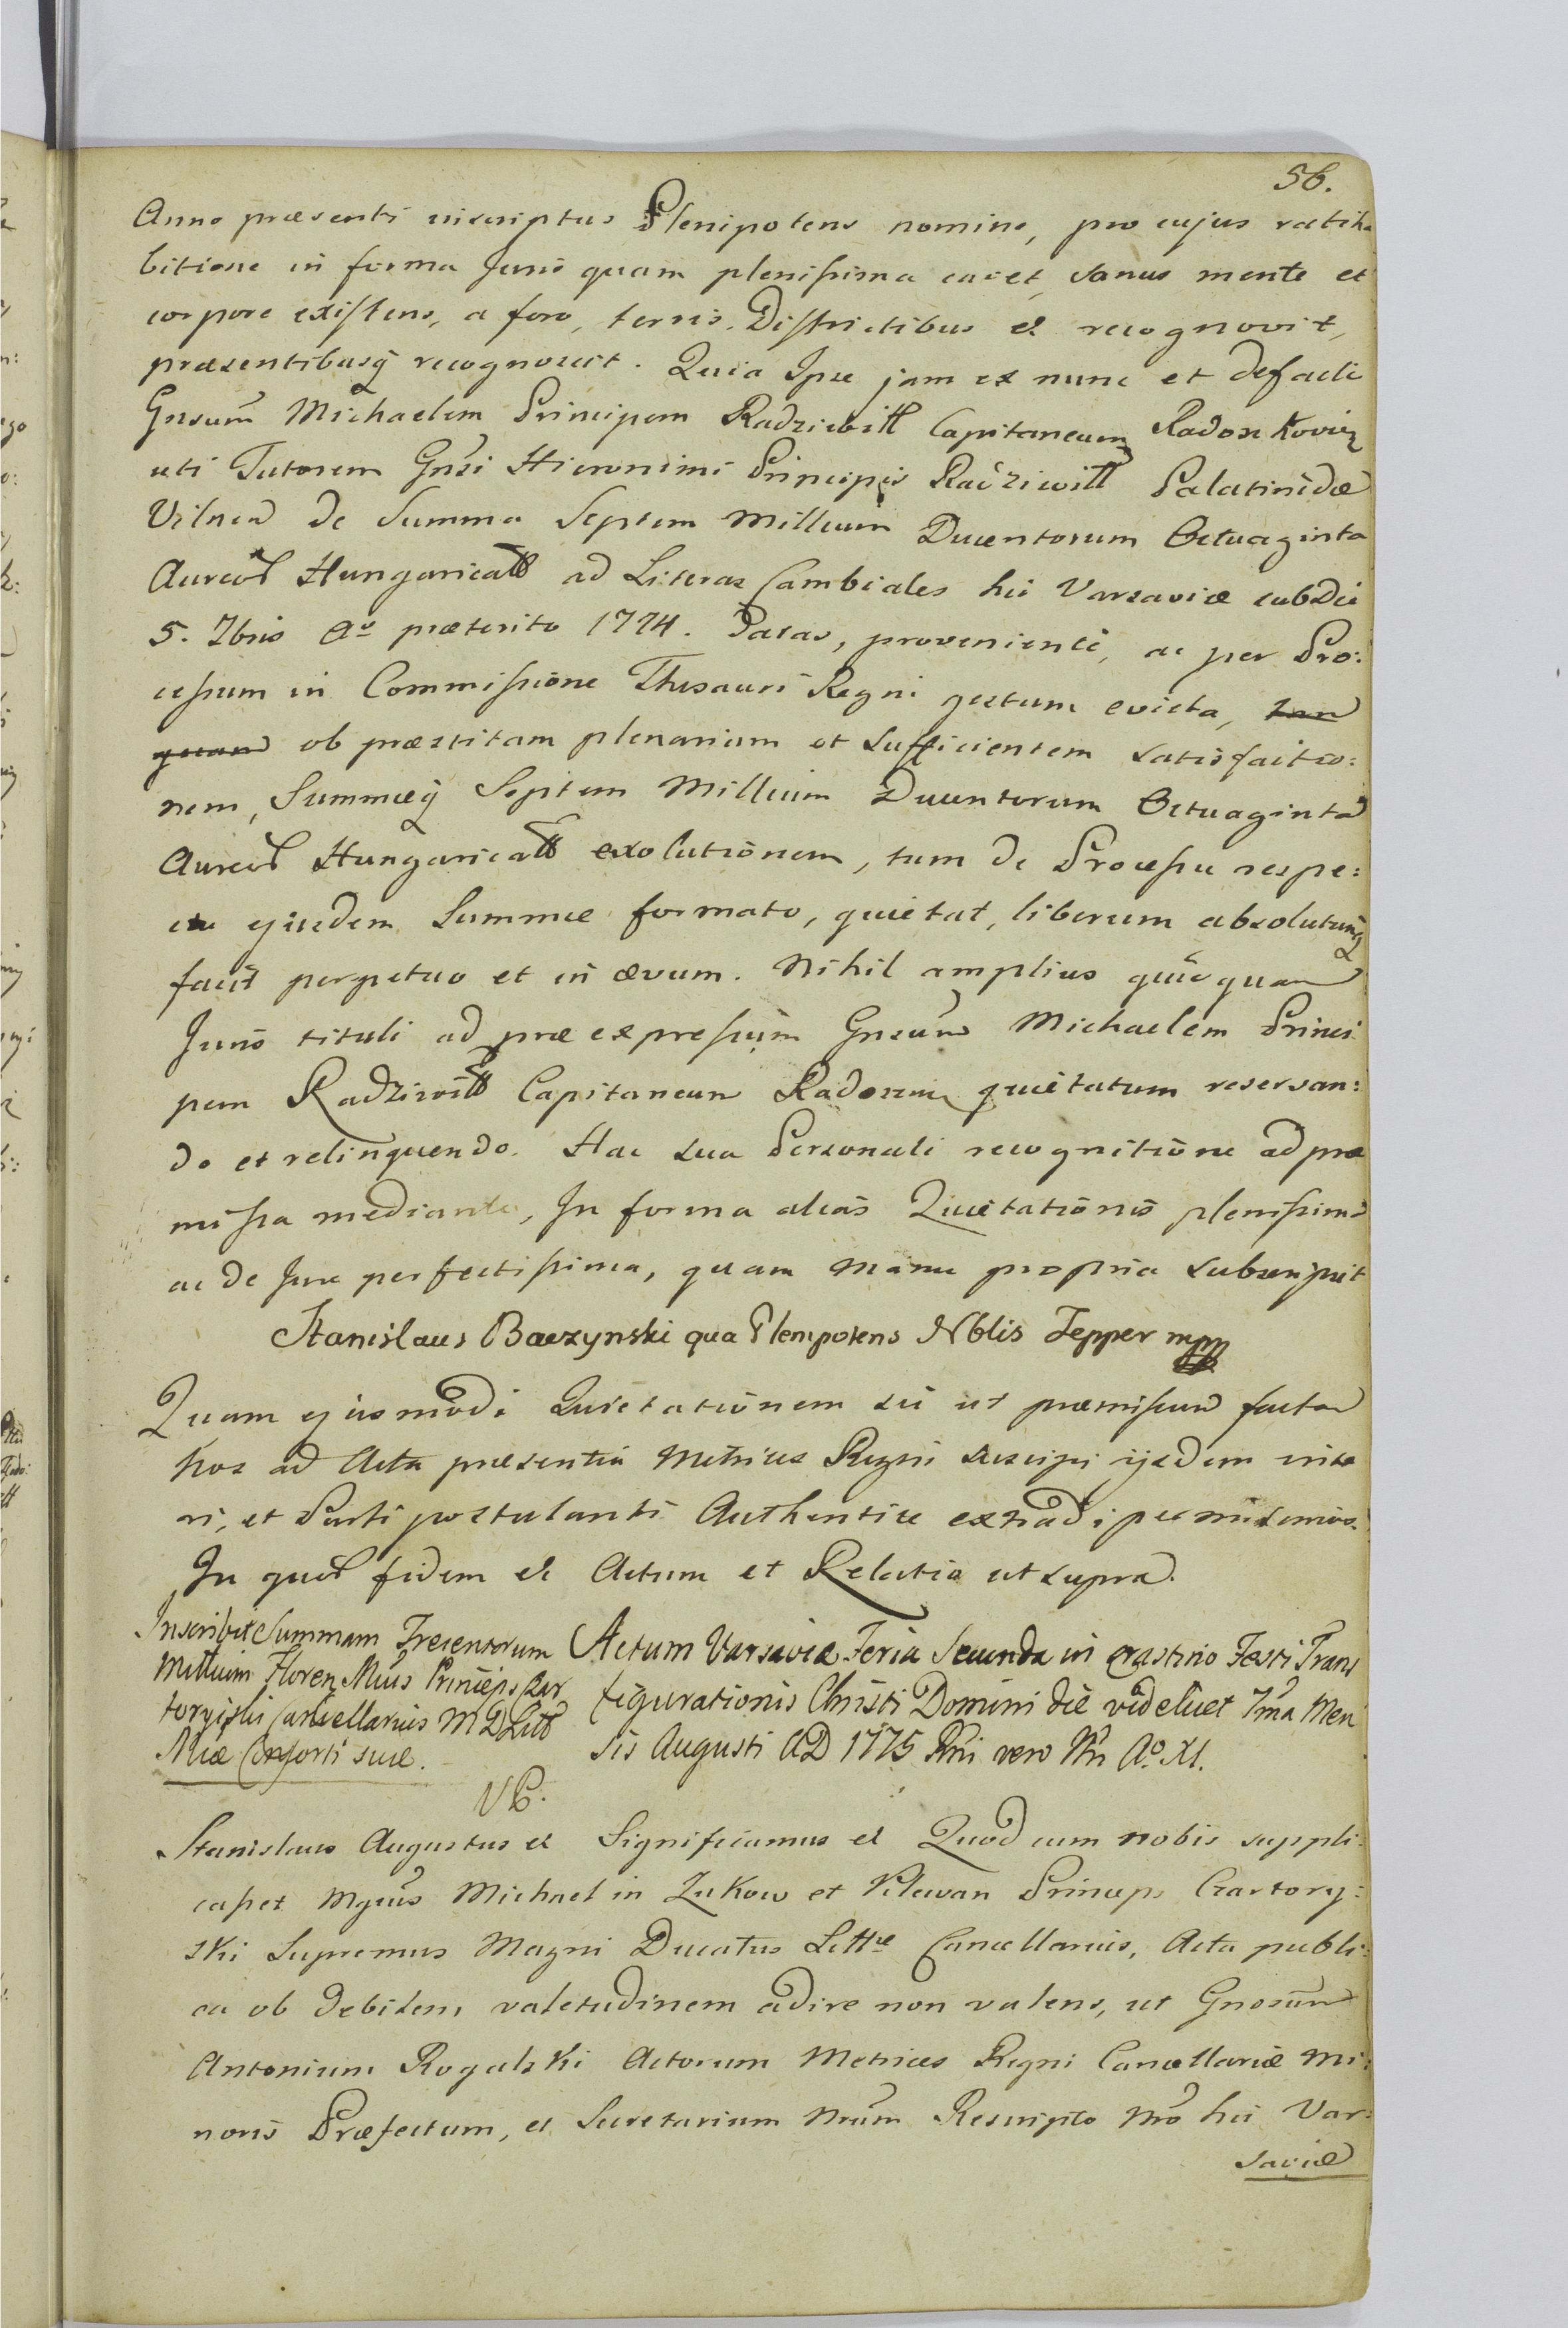 56.
Anno præsenti inscriptus Plenipotens nomine, pro cujus ratiha
bitione in forma Juris quam plenissima cavet, sanus mente et
corpore existens, a foro, terris, Districtibus et recognovit,
præsentibusq recognoscit. Quia Ipse jam ex nunc et defacti
Gnsum Michaelem Principem Radziwill Capitaneum Radoszkovien
uti Tutorem Gnsi Hieronimi Principis Radziwill Palatinidæ
Vilnen de Summa Septem Millium Ducentorum Octuaginta
Aureor Hungaricall ad Literas Cambiales hic Varsaviæ subdie
5. 7bris Ao præterito 1774. Datas, provenienti, ac per Pro:
cessum in Commissione Thesauri Regni gestum evicta, tan
quam ob præstitam plenariam et sufficientem satisfactio:
nem, Summæq Septem Millium Ducentorum Octuaginta
Aureor Hungaricall exolutionem, tum de Processu respe:
ctu ejusdem Summæ formato, quietat, liberum absolutumq
facit perpetuo et in ævum. Nihil amplius quicquam
Juris tituli ad præexpressum Gnsum Michaelem Princi
pem Radziwill Capitaneum Radoszcen quietatum reservan:
do et relinquendo. Hac sua Personali recognitione ad præ
missa mediante, In forma alias Quietationis plenissima
ac de Jure perfectissima, quam manu propria subscripsit
Stanislaus Baczynski qua Plenipotens Nblis Tepper mpp
Quam ejusmodi Quietationem sic ut præmissum factam
Nos ad Acta præsentia Metrices Regni suscipi ijsdem inse
ri, et Parti postulanti Authentice extradi permisimus.
In quor fidem et Actum et Relatia ut supra.
Inscribit Summam Trecentorum
Millium Floren Mius Princips Czar
toryiski Cancellarius M D Litt
Miæ Consorti suæ.
Actum Varsaviæ Feria Secunda in crastino Festi Trans
figurationis Christi Domini die videlicet 7ma Men
sis Augusti AD 1775 Rni vero Nri Ao. XI.
Stanislaus Augustus et Significamus et Quod cum nobis suppli:
casset Mgcus Michael in Zukow et Klewan Princeps Czartory:
ski Supremus Magni Ducatus Litthæ Cancellarius, Acta publi:
ca ob debilem valetudinem adire non valens, ut Gnosum
Antonium Rogalski Actorum Metrices Regni Cancellariæ Mi:
noris Præfectum, et Secretarium Nrum Rescripto Nro hic Var:
saviæ